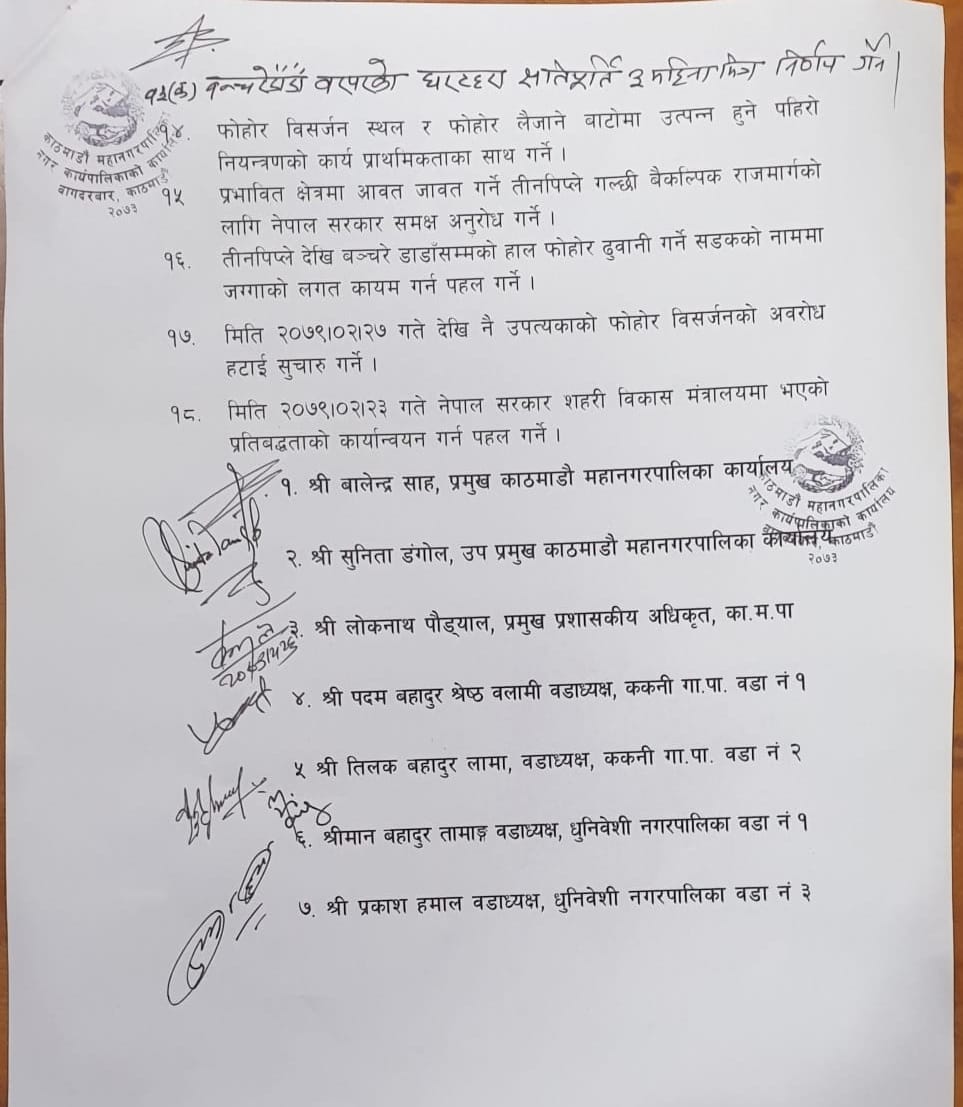 १३(क) बन्चरेडाँडा वरपरको घरटहरा क्षतिपूर्ति ३ महिना भित्र निर्णय गर्ने।
१४. फोहोर विसर्जन स्थल र फोहोर लैजाने बाटोमा उत्पन्न हुने पहिरो
नियन्त्रणको कार्य प्राथमिकताका साथ गर्ने ।
१५ प्रभावित क्षेत्रमा आवत जावत गर्ने तीनपिप्ले गल्छी बैकल्पिक राजमार्गको
लागि नेपाल सरकार समक्ष अनुरोध गर्ने ।
१६. तीनपिप्ले देखि बञ्चरे डाडाँसम्मको हाल फोहोर ढुवानी गर्ने सडकको नाममा
जग्गाको लगत कायम गर्न पहल गर्ने ।
१७. मिति २०७९।०२।२७ गते देखि नै उपत्यकाको फोहोर विसर्जनको अवरोध
हटाई सुचारु गर्ने ।
१८. मिति २०७९।०२।२३ गते नेपाल सरकार शहरी विकास मंत्रालयमा भएको
प्रतिबद्धताको कार्यान्वयन गर्न पहल गर्ने ।
१. श्री बालेन्द्र साह, प्रमुख काठमाडौ महानगरपालिका कार्यालय
२. श्री सुनिता डंगोल, उप प्रमुख काठमाडौ महानगरपालिका कार्यालय
३. श्री लोकनाथ पौड्याल, प्रमुख प्रशासकीय अधिकृत, का.म.पा
४. श्री पदम बहादुर श्रेष्ठ वलामी वडाध्यक्ष, ककनी गा.पा. वडा नं १
५ श्री तिलक बहादुर लामा, वडाध्यक्ष, ककनी गा.पा. वडा नं २
६. श्रीमान बहादुर तामाङ्ग वडाध्यक्ष, धुनिवेशी नगरपालिका वडा नं १
७. श्री प्रकाश हमाल वडाध्यक्ष, धुनिवेशी नगरपालिका वडा नं ३
काठमाडौ महानगरपालिका
नगर कार्यपालिकाको कार्यालय
बागदरबार, काठमाडौ
२०७३
काठमाडौ महानगरपालिका
नगर कार्यपालिकाको कार्यालय
काठमाडौ
२०७३